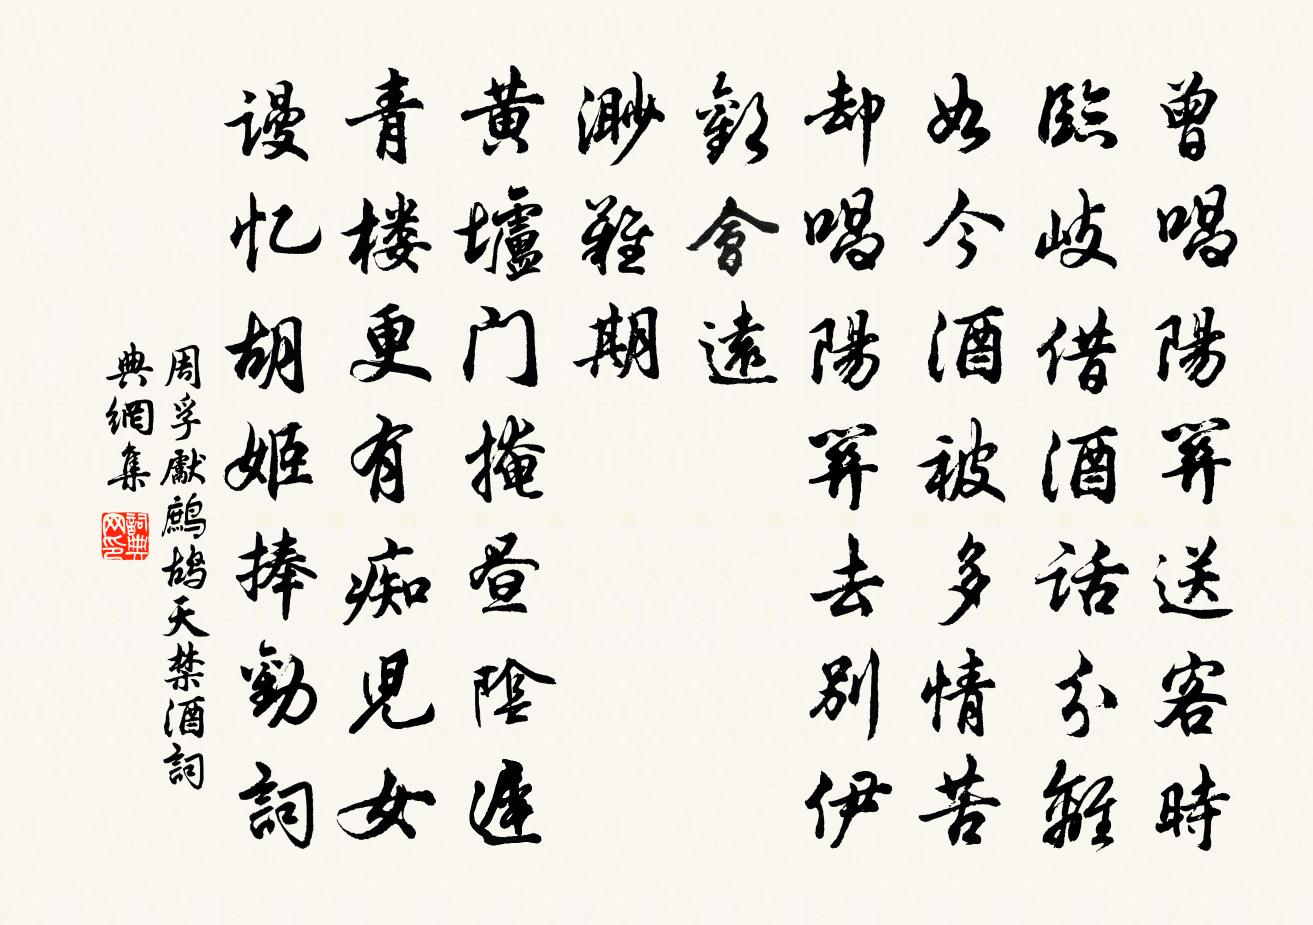 曾唱陽關送客時
臨歧借酒話分離
如今酒被多情苦
却唱陽關去別伊
歡會遠
渺難期
黃壚門掩晝陰遲
青楼更有痴兒女
谩忆胡姬捧勸詞
周孚獻鷓鴣天禁酒詞
典網集
詞典网印